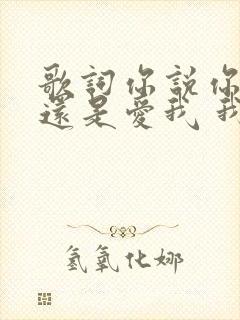 歌詞你說你
還是愛我 我
氢氧化娜